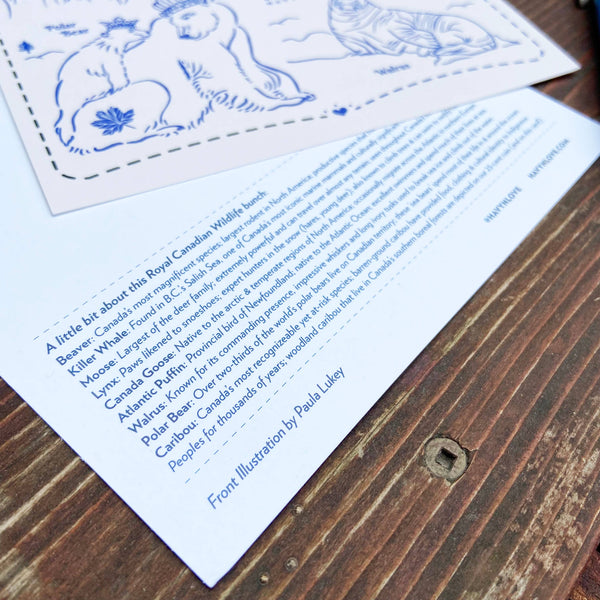 Polar
Bear
Walrus
A little bit about this Royal Canadian Wildlife bunch:
Beaver: Canada's most magnificent species; largest rodent in North America; productive
Killer Whale: Found in B.C.'s Salish Sea, one of Canada's most iconic marine mammals and culturally
Moose: Largest of the deer family; extremely powerful and can travel over almost any terrain; seen throughout
Lynx: Paws likened to snoeshoes; expert hunters in the snow (hares, young deer);
Canada Goose: Native to the arctic & temperate regions of North America; occasionally migrate across
Atlantic Puffin: Provincial bird of Newfoundland; native to the Atlantic Ocean; excellent swimmers and spend much of their time
Walrus: Known for its commanding presence, impressive whiskers and long ivory tusks used to
Polar Bear: Over two-thirds of the world's polar bears live on Canadian territory; these 'sea bears' spend most of their life in & around the
Caribou: Canada's most recognizeable, yet at-risk species; barren-ground caribou have provided food, clothing & cultural identity to Indigenous
Peoples for thousands of years; woodland caribou that live in Canada's southern boreal forests are depicted on our 25 cent coin (and on this card!)
Front Illustration by Paula Lukey
#HAVYNLOVE HAVYNLOVE